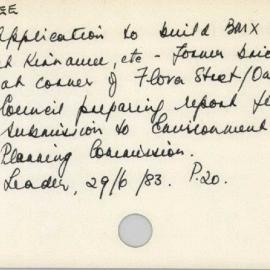 EE
Application to build Barx
at Kirrawee, etc - former bric
at corner of Flora Street/Oa
Council preparing report f
submission to Environment
Planning Commission.
Leader, 29/6/83. P.20.